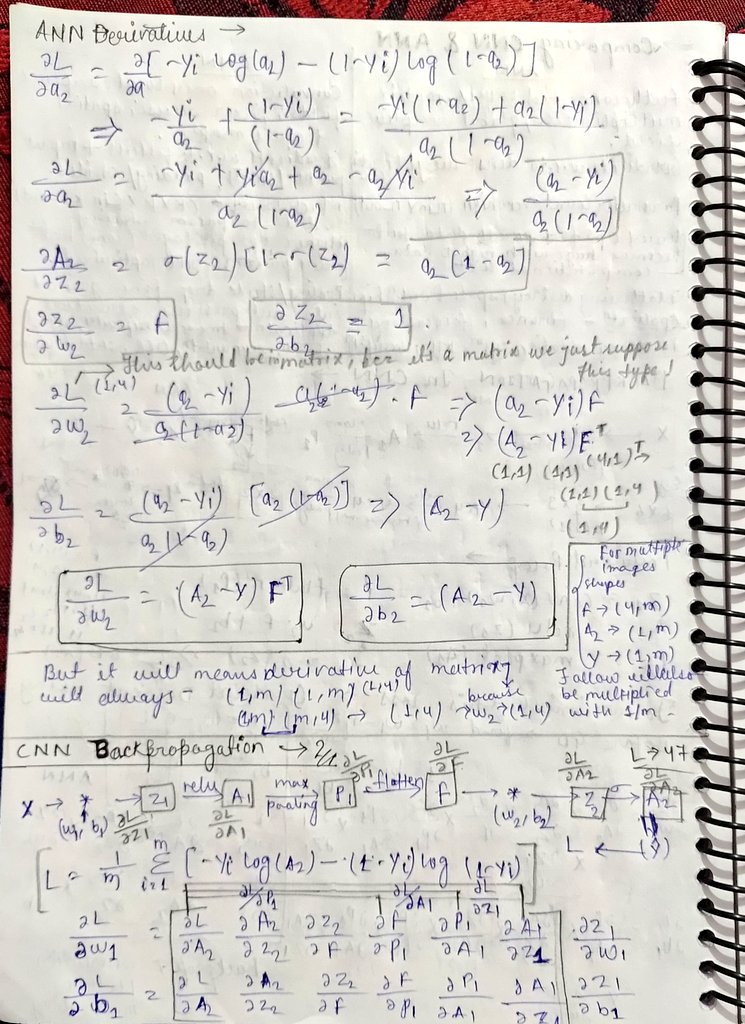 ANN Derivatives →
∂L/∂a₂ = ∂/∂a [-Yi log(a₂) - (1-Yi) log (1-a₂)]
⇒ -Yi/a₂ + (1-Yi)/(1-a₂) = -Yi(1-a₂) + a₂(1-Yi) / a₂(1-a₂)
∂L/∂a₂ = -Yi + Yia₂ + a₂ - a₂Yi / a₂(1-a₂) ⇒ (a₂-Yi) / a₂(1-a₂)
∂A₂/∂Z₂ = σ(Z₂)[1-σ(Z₂) = a₂[1-a₂]
∂Z₂/∂w₂ = F ∂Z₂/∂b₂ = 1.
→ This should be in matrix, bcz it's a matrix we just suppose
this type!
∂L/∂w₂ (1,4) = (a₂-Yi)/a₂(1-a₂) a₂(1-a₂) · F ⇒ (a₂-Yi)F
⇒ (A₂-Yi)Fᵀ
(1,1) (1,1) (4,1)ᵀ
(1,1) (1,4)
(1,4)
∂L/∂b₂ = (a₂-Yi)/a₂(1-a₂) [a₂(1-a₂)] ⇒ (A₂-Y)
∂L/∂w₂ = (A₂-Y) Fᵀ ∂L/∂b₂ = (A₂-Y)
For multiple
images
shapes
F → (4,m)
A₂ → (1,m)
Y → (1,m)
But it will means derivative of matrix
will always - (1,m) (1,m) (1,4)
(1,m) (m,4) → (1,4) → because w₂→(1,4)
be multiplied
with 1/m -
CNN Backpropagation →
∂L/∂P₁ ∂L/∂F ∂L/∂A₂ L→47 ∂L/∂A₂
X → * → Z₁ relu A₁ max pooling P₁ flatten F → * → Z₂ σ A₂
(w₁, b₁) ∂L/∂Z₁ ∂L/∂A₁ (w₂, b₂) L ← (Ŷ)
L = 1/m Σ i=1 m [-Yi log(A₂) - (1-Yi) log (1-Yi)]
∂L/∂P₁ ∂L/∂A₁ ∂L/∂Z₁
∂L/∂w₁ = ∂L/∂A₂ ∂A₂/∂Z₂ ∂Z₂/∂F ∂F/∂P₁ ∂P₁/∂A₁ ∂A₁/∂Z1 · ∂Z₁/∂w₁
∂L/∂b₁ = ∂L/∂A₂ ∂A₂/∂Z₂ ∂Z₂/∂F ∂F/∂P₁ ∂P₁/∂A₁ ∂A₁/∂Z₁ ∂Z₁/∂b₁